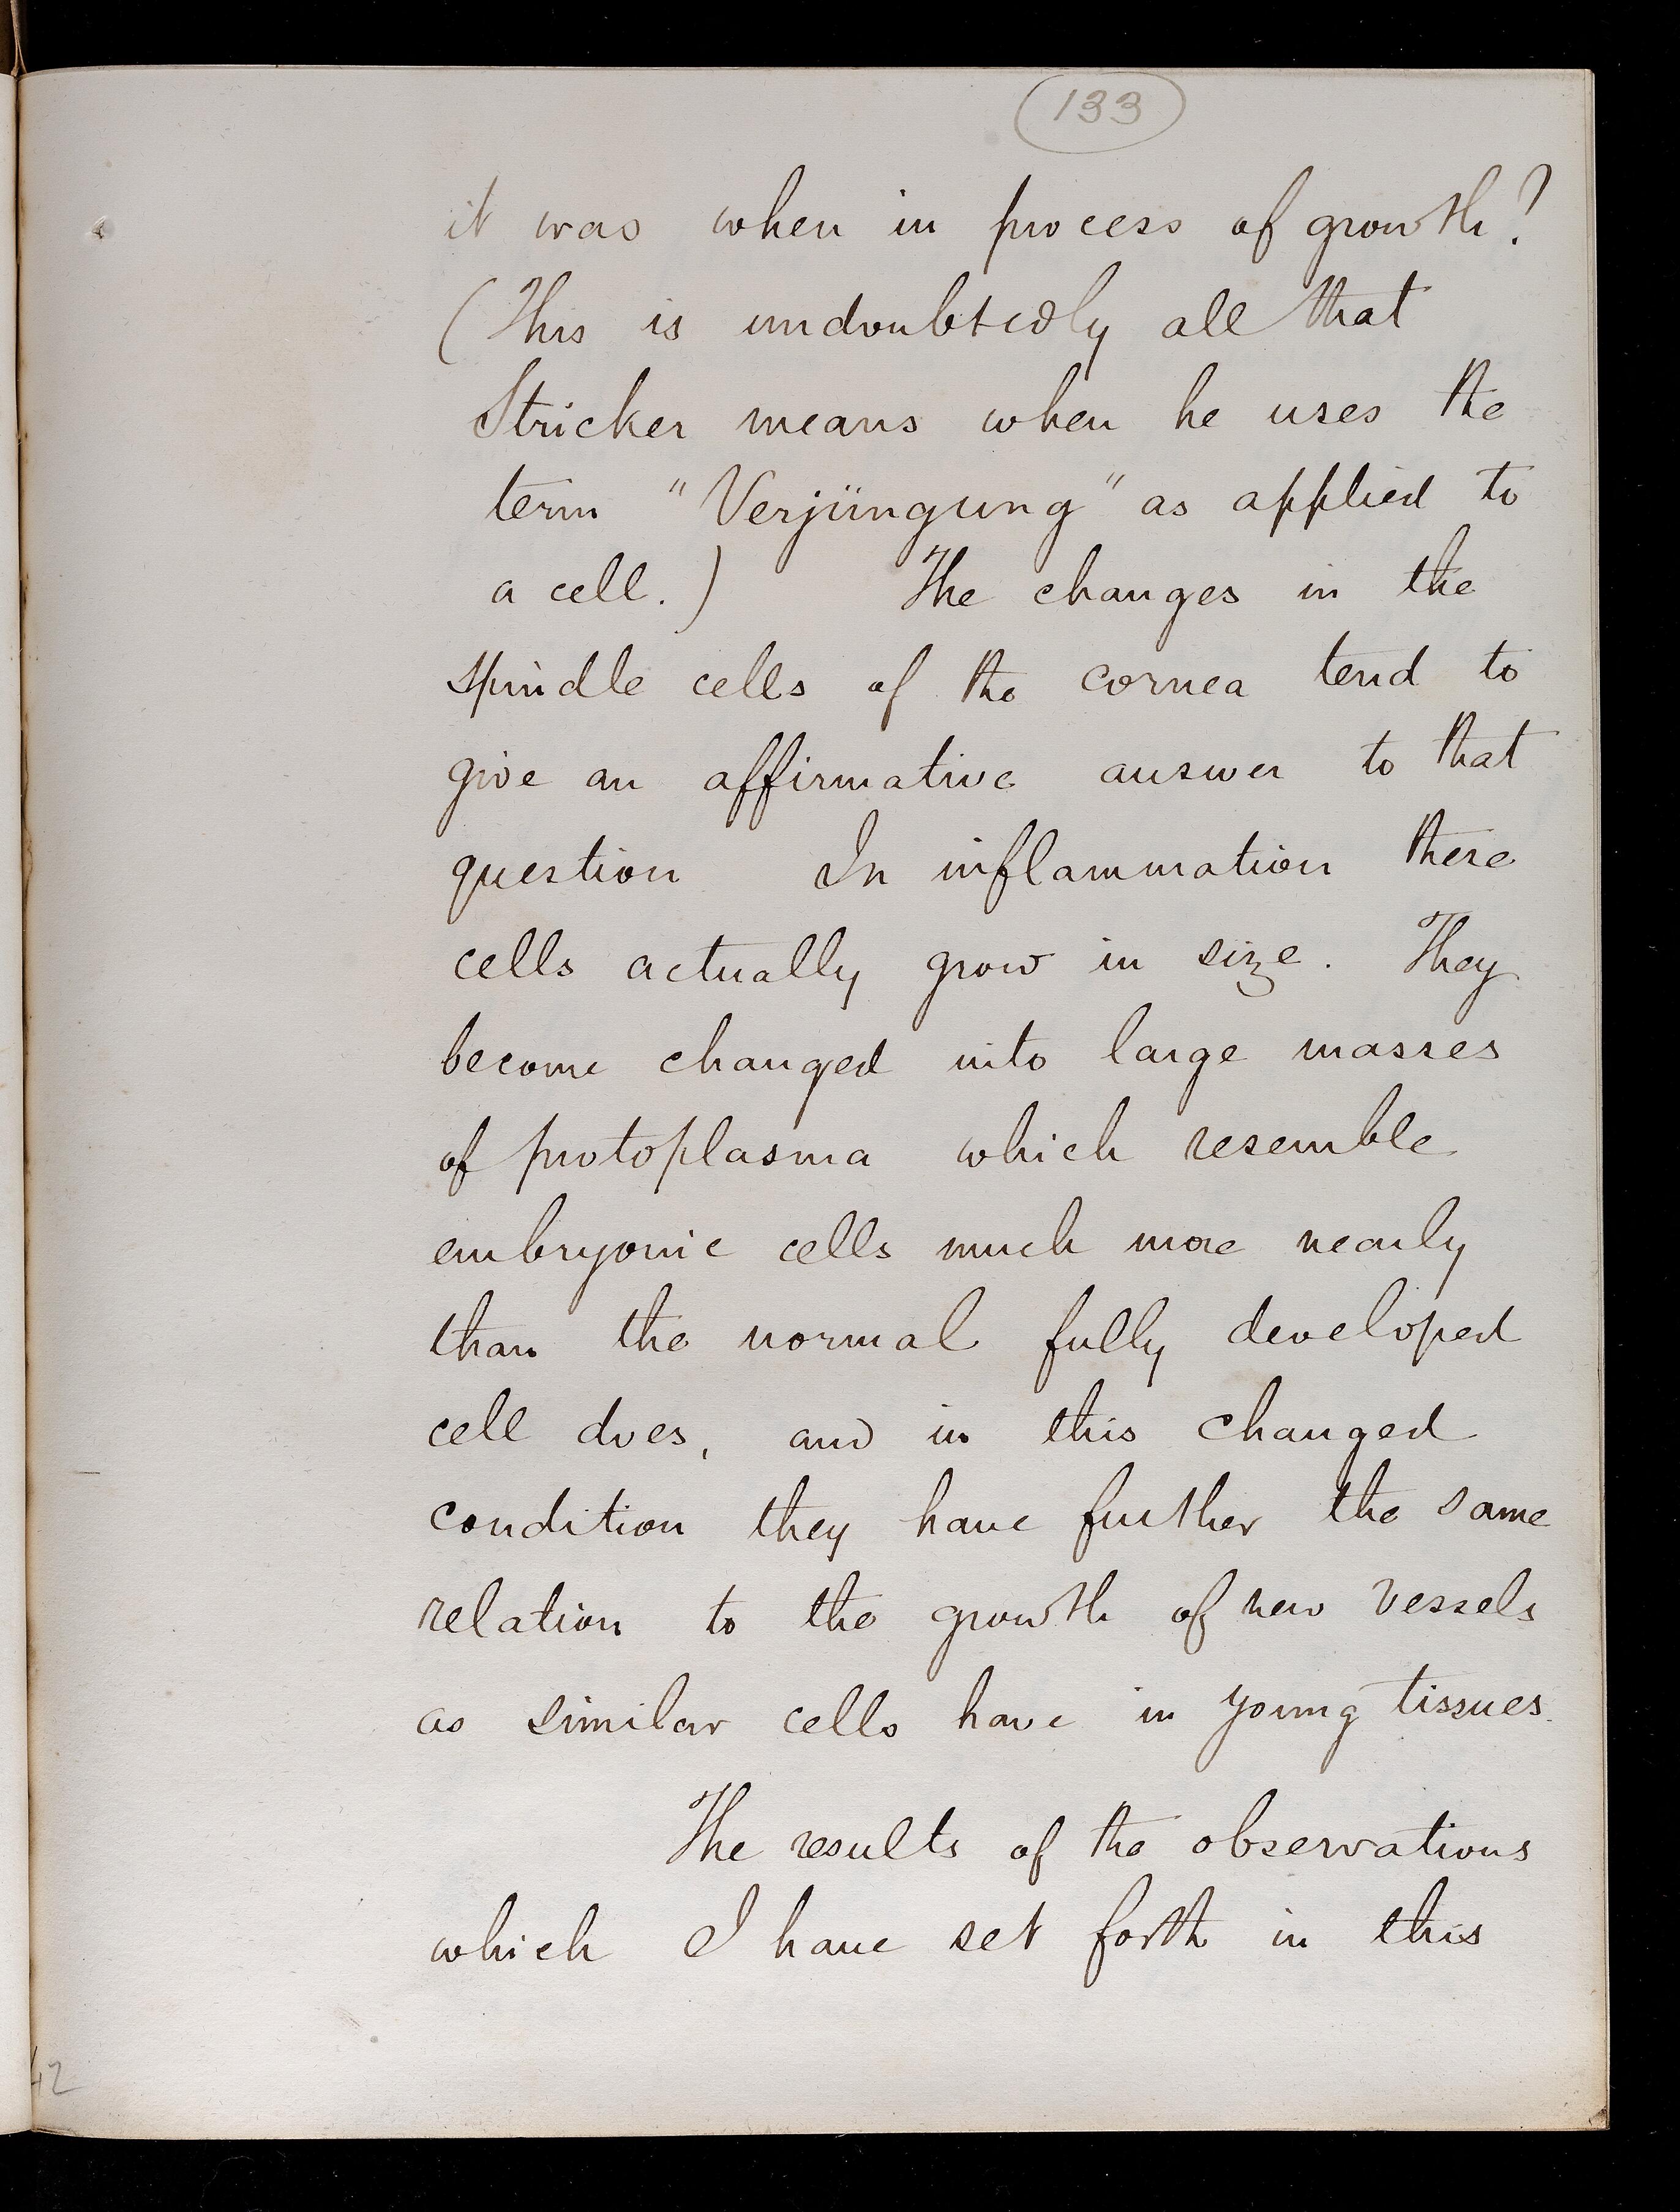 133
it was when in process of growth?
(This is undoubtedly all that
Stricker means when he uses the
term "Verjüngung" as applied to
a cell.) The changes in the
spindle cells of the cornea tend to
give an affirmative answer to that
question In inflammation these
cells actually grow in size. They
become changed into large masses
of protoplasma which resemble
embryonic cells much more nearly
than the normal fully developed
cell does, and in this changed
condition they have further the same
relation to the growth of new vessels
as similar cells have in young tissues.
The results of the observations
which I have set forth in this
42